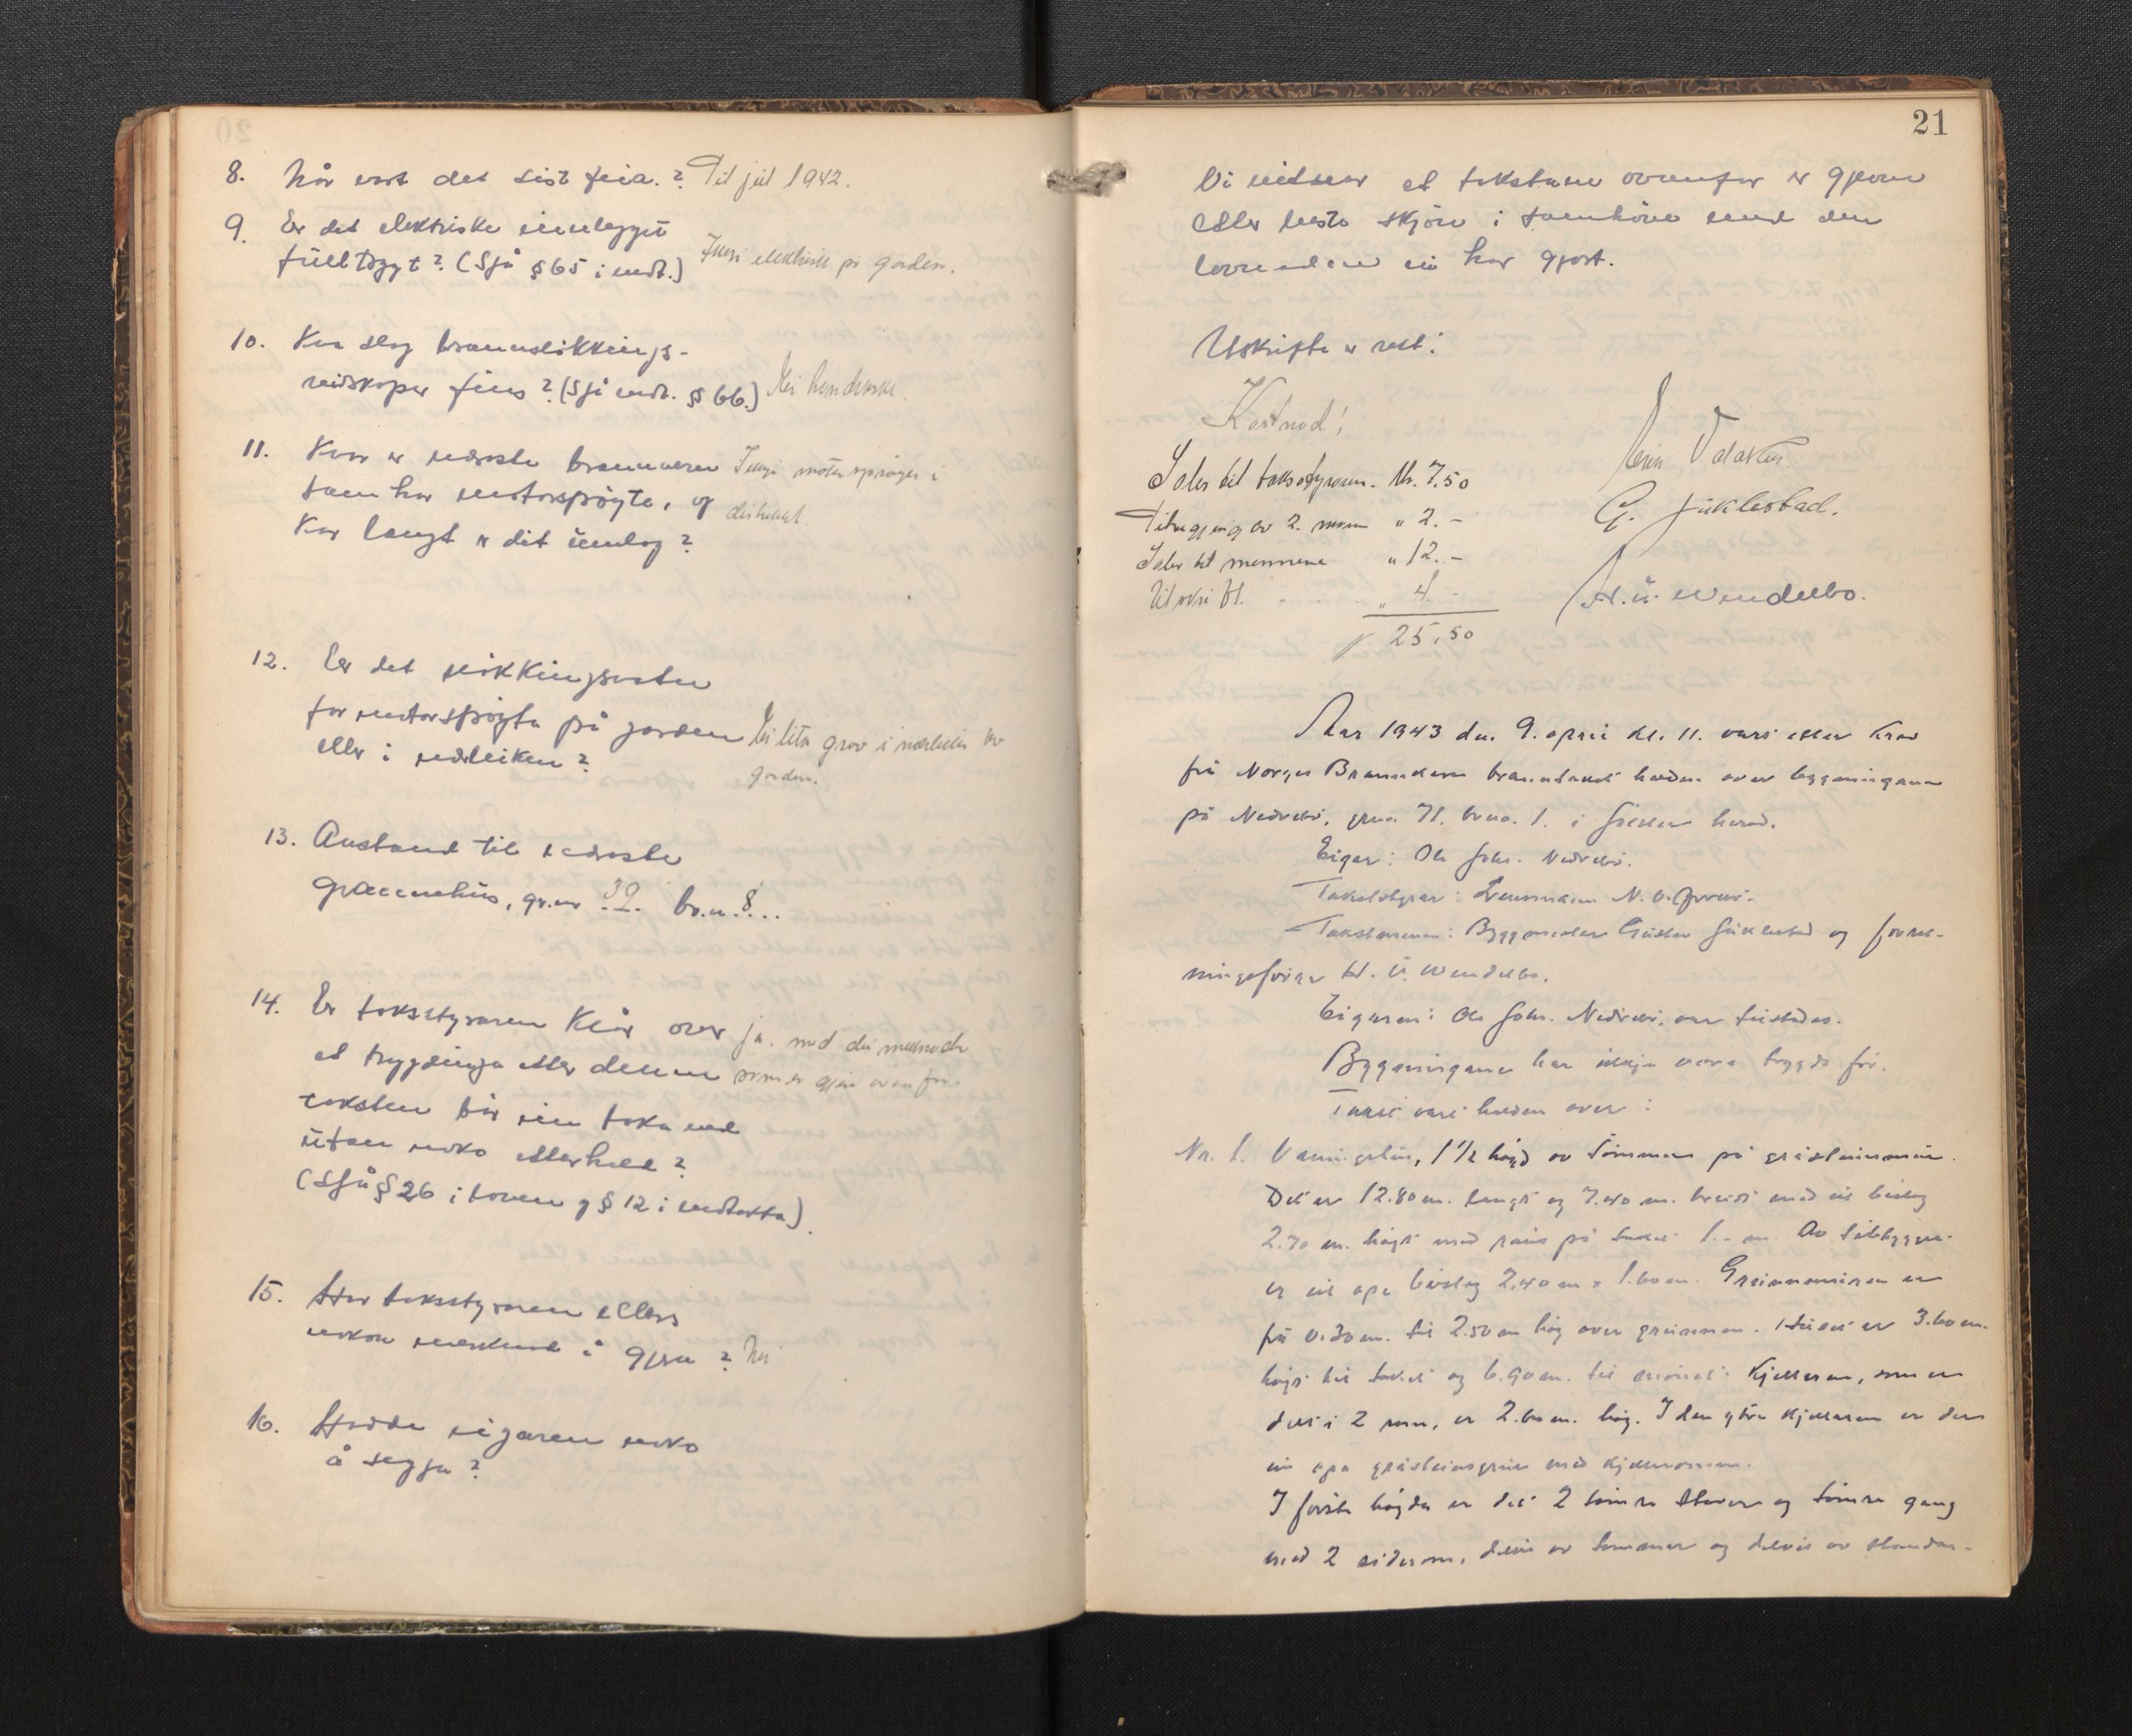 8. Når vart det sist feia.? Til jul 1942.
9. Er det elektriske innlegget
fullt trygt? (Sjå § 65 i vedt.) Inkji elektrisk på garden.
10. Kva slag brannsløkkings-
reidskaper fins? (Sjå vedt. § 66.)
11. Kvar er næraste brannvern Inkji motorsprøyter i
som har motorsprøyte, og distriktet.
Kor langt er dit unna?
12. Er det sløkkingsvatn
for motorsprøyta på garden Ei lita grov i nærheten av
eller i nærleiken? garden.
13. Avstand til næraste
grannehus, gr.nr 39. br.n. 8...
14. Er takststyraren klår over ja. med dei
at trygdinga etter denne som er gjeve ovanfor.
taksten bør inn taka med
utan noko atterhald?
(Sjå § 26 i loven og § 12 i vedtekta).
15. Har takststyraren ellers
nokon merknad å gjera? Nei
16. Hadde eigaren noko
å segja?
21
Vi vitnar at takstane ovanfor er gjevne
etter beste skjøn i samhøve med den
lovnaden vi har gjort.
Utskrifta er rett:
Kostnad:
Saler til takststyraren. Kr. 7.50
Tilsegjing av 2. menn " 2.-
Saler til mennene " 12.-
Utskrift. " 4.-
25,50
G. Fuklestad.
H. U. Wendelbo.
Aar 1943 den 9. april kl. 11. vart etter krav
frå Norges Brannkasse branntakst halden over bygningane
på Nedrebø, gnr. 71. bnr. 1. i herad.
Eigar: Ola Johs. Nedrebø.
Takststyrar: Lensmann N. O.
Takstmenn: Byggmester Gustav Fuklestad og forret-
ningsførar H. U. Wendelbo.
Eigaren: Ola Johs. Nedrebø, var tilstades.
Bygningane har ikkje vore trygda før.
Takst vart halden over:
Nr. 1. Våningshus, 1 1/2 høgd av tømmer på gråsteinsmur.
Det er 12.80 m. langt og 7.40 m. breidt med eit bislag
2.70 m. høgt med reis på taket 1.- m. Av tilbygger
er eit ope bislag 2,40 m x 1.60 m. Grunnmuren er
frå 0.30 m. til 2.50 m høg over grunnen. Huset er 3.60 m.
høgt til taket og 6.90 m. til mønet. Kjellaren, som er
delt i 2 rom, er 2.60 m. høg. I den ytre kjellaren er der
ein open gråsteinsgrue med kjelleromn.
I første høgda er det 2 tømra stover og tømra gang
med 2 siderom, delvis av tømmer og delvis av standar-